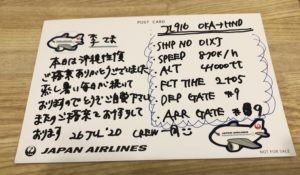 POST CARD
李さま
本日は沖縄→羽田
ご搭乗ありがとうございました
蒸し暑い毎日が続いて
おりますのでどうぞご自愛下さい
またのご搭乗をお待ちして
おります 26 JUL '20 CREW一同
JAPAN AIRLINES
JL916 OKA→HND
・SHIP NO 01XJ
・SPEED 870K/h
・ALT 41000ft
・FLT TIME 2+05
・DEP GATE #
・ARR GATE #
JAPAN AIRLINES
NOT FOR SALE